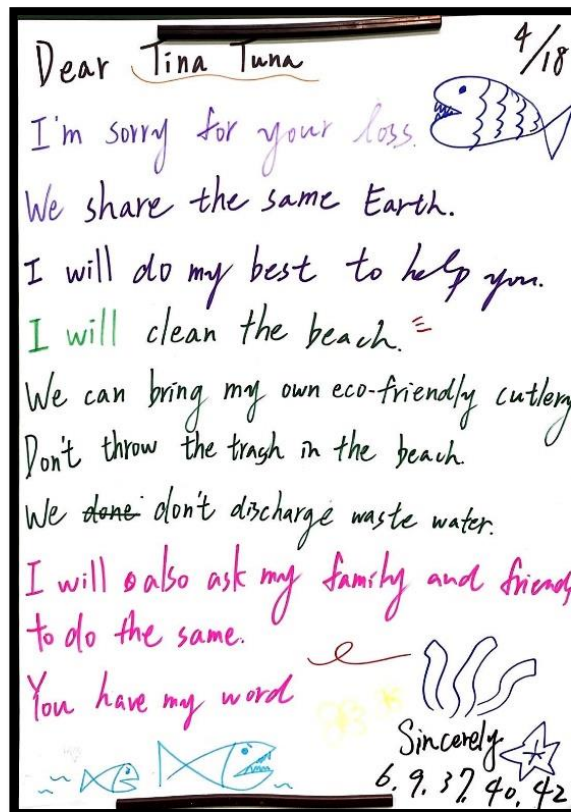 4/18
Dear Tina Tuna
I'm sorry for your loss.
We share the same Earth.
I will do my best to help you.
I will clean the beach.
We can bring my own eco-friendly cutlery
Don't throw the trash in the beach.
We done don't discharge waste water.
I will also ask my family and friends
to do the same.
You have my word
Sincerely
6. 9. 37. 40. 42